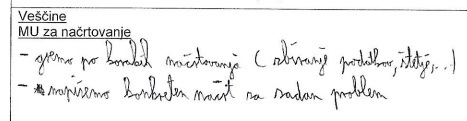 Veščine
MU za načrtovanje
- gremo po korakih načrtovanja (zbiranje podatkov, štetje, ...)
- napišemo konkreten načrt za zadan problem